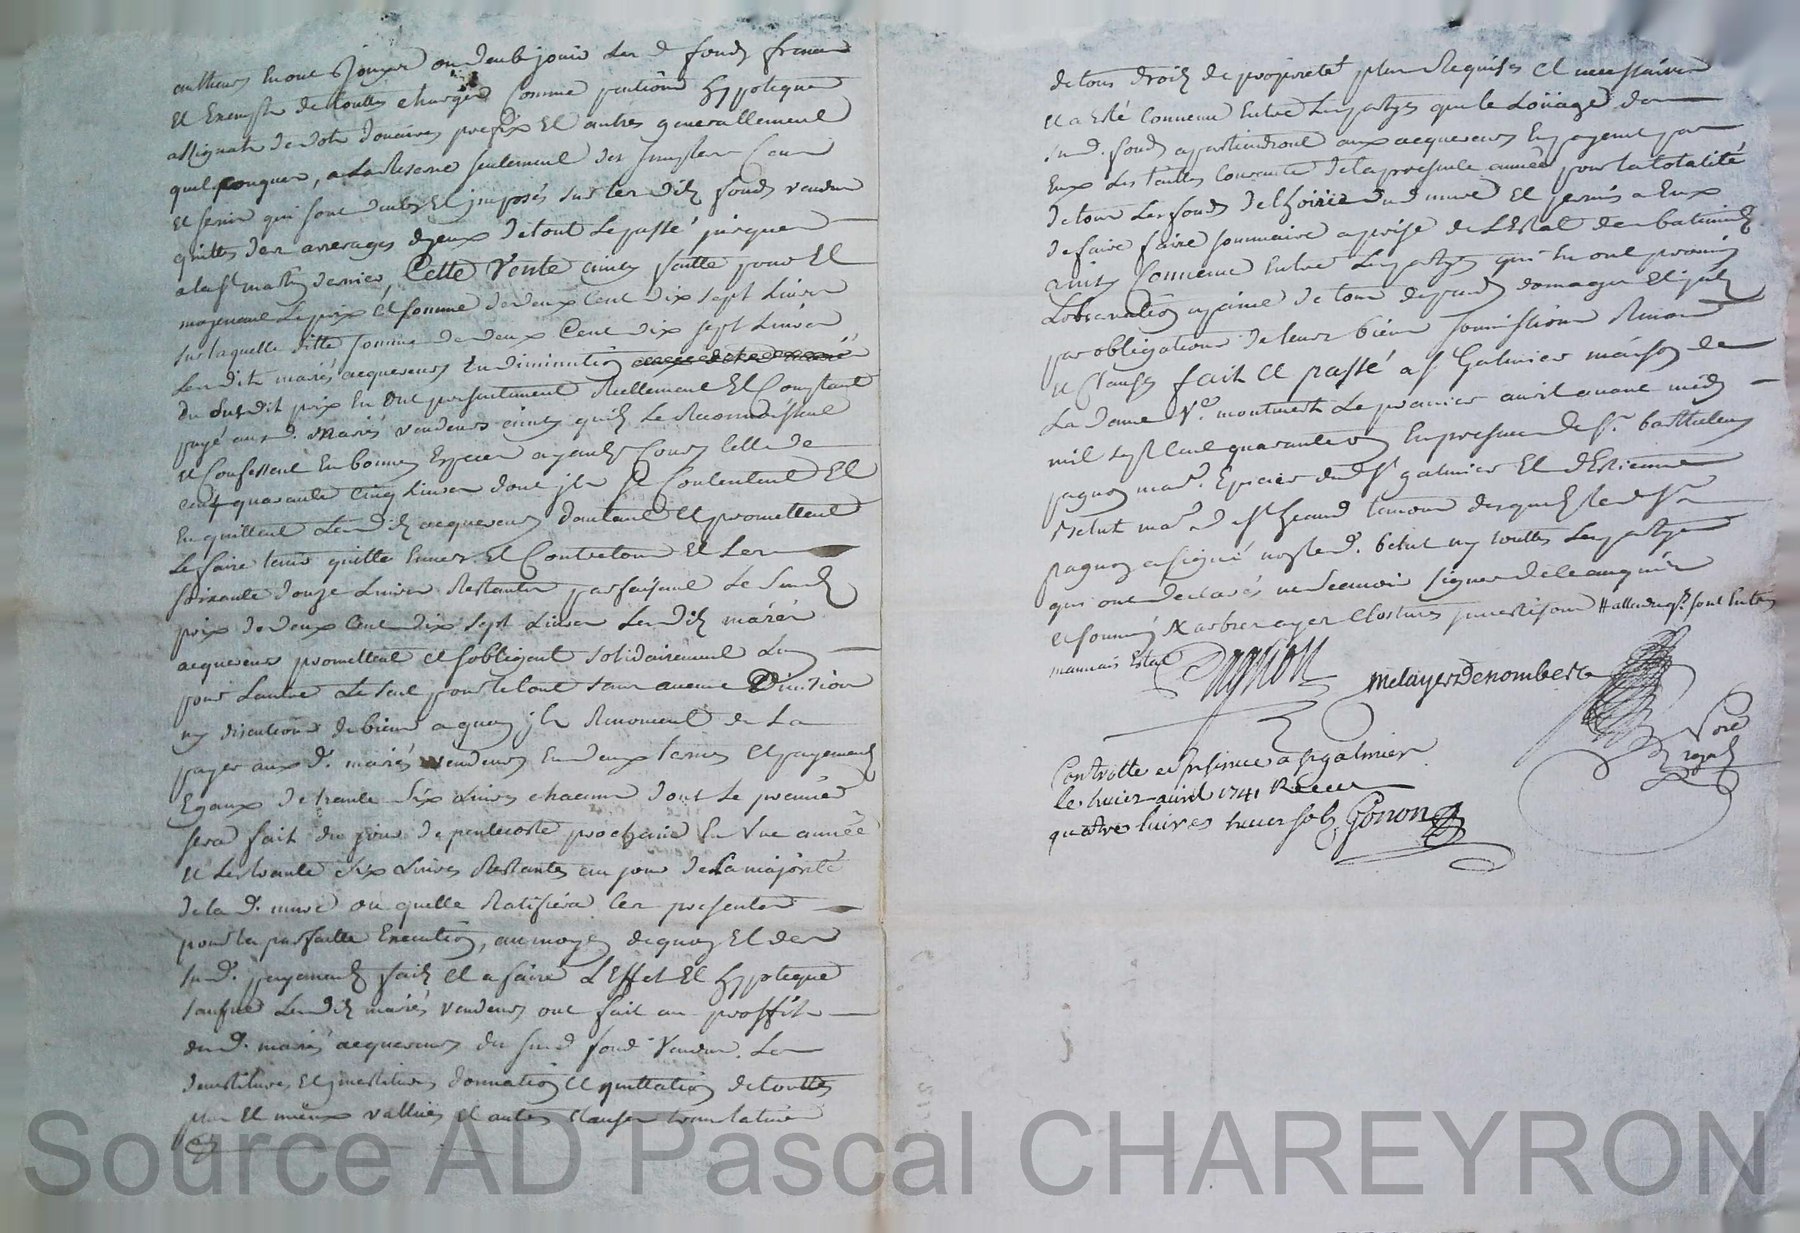 autheurs en ont jouys ou deub jouir les d fonds francs
et Exempts de touttes charges comme pentions hypoteque
assignats de dots douaires prefix et autres generallement
quelconques, a La Reserve seulement des Imposts Cens
et servis qui sont deubs et imposés sur les dits fonds vendus
quittes des arrerages d'yeux de tout Le passé jusques
a la st martin dernier, Cette Vente ainsy faitte pour Et
moyenant Le prix et somme de deux Cent dix sept Livres
sur laquelle ditte somme de deux Cent dix sept Livres
Lesdits mariés acquereurs En diminution
du susdit prix En ont presentement Reellement Et Comptant
payé auxd. mariés vendeurs ainsy quils Le Reconnoissent
et Confessent En bonnes Especes ayants Cours celle de
cent quarante cinq Livres dont ils se Contentent Et
En quittent Lesdits acquereurs d'autant et promettent
Le faire tenir quitte Envers Et Contre tous Et Les
soixante douze Livres Restantes parfaisant Le susd
prix de deux Cent dix sept Livres Lesdits mariés
acquereurs promettent et sobligent solidairement Lun
pour Lautre Le seul pour le tout sans aucune Division
ny discution de biens a quoy ils Renoncent de La
payer auxd. mariés vendeurs En deux termes et payements
Egaux de trente six Livres chacun dont Le premier
sera fait du jour de pentecoste prochaine En Une année
et Les trente six Livres Restantes au jour de La majorité
de la d. mure ou quelle Ratifiera les presentes
pour La parfaitte Execution, au moyen de quoy Et des
susd. payements faits et a faire L'Effet Et hypoteque
Lesdits mariés vendeurs ont fait au proffit
desd. mariés acquereurs du susd fond Vendu Les
demistitures Et jnvestitures donnation et quittation de touttes
plus Et mieux vallues et autres clauses translatives
de tous droits de proprieté plus Requises et necessaires
et a Esté Convenu Entre Les partyes que le Loüage des
susd. fonds appartiendront aux acquereurs En payant par
Eux Les tailles Courante de la presente année pour la totalité
de tous Les fonds de L'hoirie dud mure Et permis a Eux
de faire faire sommaire aprise de L'Estat des batiments
ainsy Convenu Entre Les partyes qui En ont promis
L'observation a peine de tous depends domages Et jnts
par obligations de leurs biens soumissions Renon
et Clauses fait et passé a st Galmier maison de
La dame Ve. montmert Le premier avril avant midy
mil sept cent quarante un En presence de sr. barthelemy
pagnon mard. Epicier dud st galmier Et d'Estienne
Belut mard dud st heand temoins desquels led sr
pagnon a signé non led. belut ny touttes Les partyes
qui ont declarés ne scavoir signer de ce enquis
et sommés
mauvais Estat
Pagnon
metayer De nombre
Controllé et Insinué a st galmier
le huit avril 1741 Receu
quatre livres huit sols Gonon
Nore
Royal
Source AD Pascal CHAREYRON